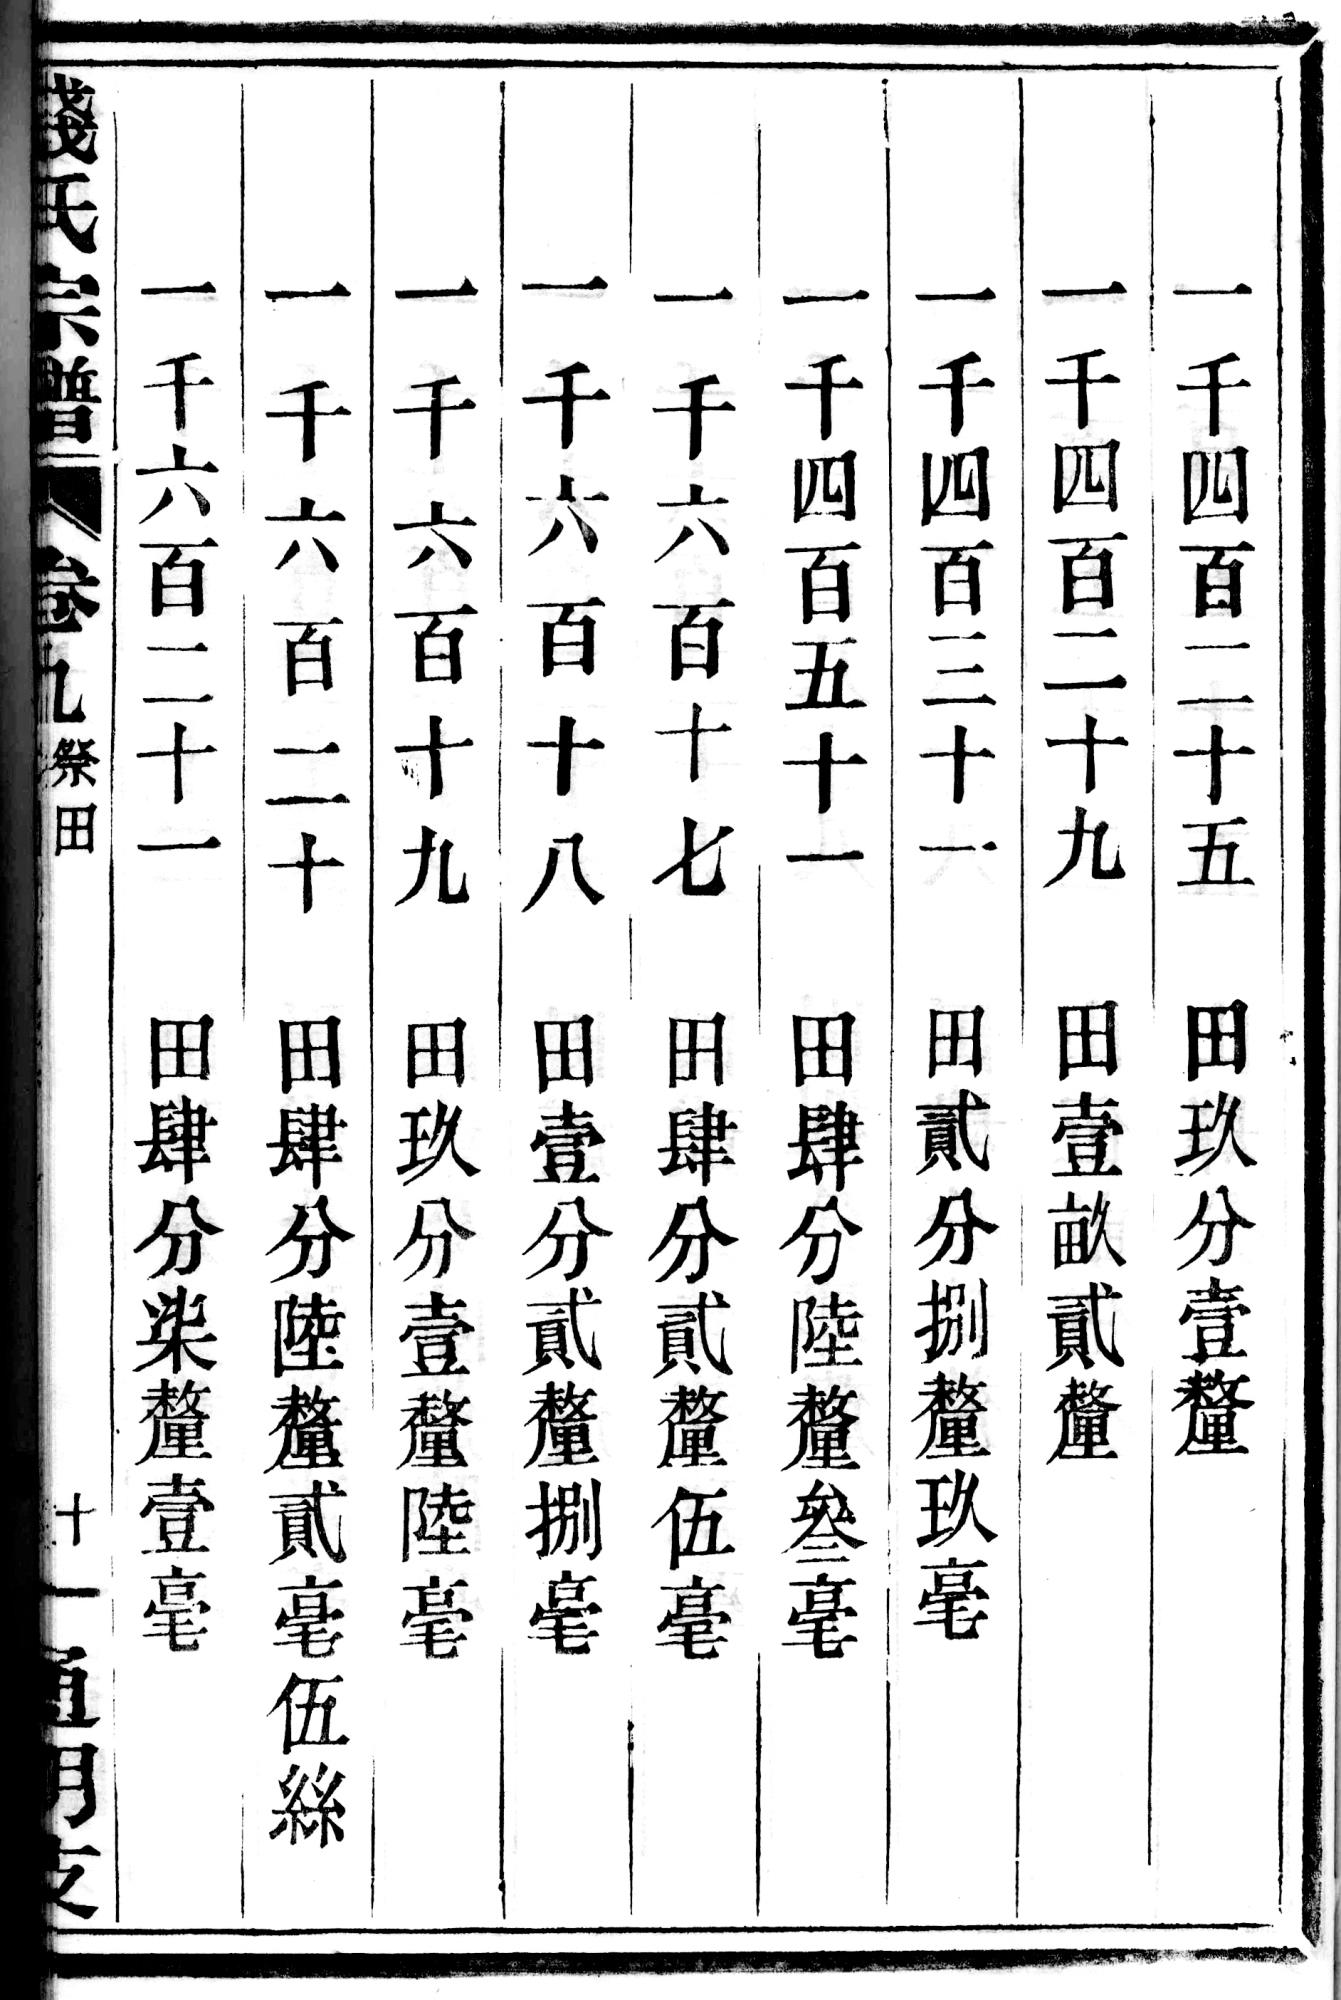 一千四百二十五 田玖分壹釐
一千四百二十九 田壹畝貳釐
一千四百三十一 田貳分捌釐玖毫
一千四百五十一 田肆分陸釐叁毫
一千六百十七 田肆分貳釐伍毫
一千六百十八 田壹分貳釐捌毫
一千六百十九 田玖分壹釐陸毫
一千六百二十 田肆分陸釐貳毫伍絲
一千六百二十一 田肆分柒釐壹毫
錢氏宗譜 卷九 祭田 十一 通明支